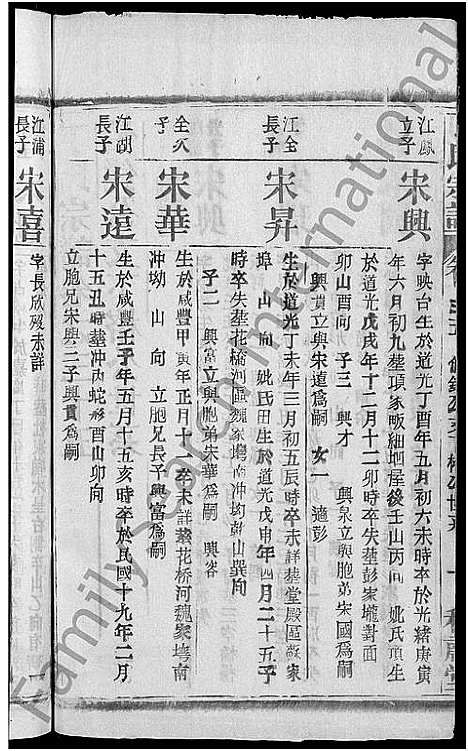 江鳳
立子
宋興
字映台生於道光丁酉年五月初六未時卒於光緒庚寅
年六月初九塟項家畈細垇屋後壬山丙向 妣氏項生
於道光戊戌年十二月十二卯時卒失塟彭家壠對面
卯山酉向 子三 興才 興泉立與胞弟宋國爲嗣
興 立與宋遠爲嗣 女一 適彭
江全
長子
宋昇
生於道光丁未年三月初五辰時卒未詳塟堂殿區蘇家
埠 山 向 妣氏田生於道光戊申年四月二十五子
時卒失塟花橋河區魏家塆南冲坳乾山巽向
子二 興富立與胞弟宋華爲嗣 興容
全次
子
宋華
生於咸豐甲寅年正月十 卒未詳塟花桥河魏家塆南
冲坳 山 向 立胞兄長子興富爲嗣
江湖
長子
宋遠
生於咸豐壬子年五月十五亥時卒於民國十九年二月
十五丑時塟冲丙蛇形酉山卯向
立胞兄宋興三子興貫爲嗣
江浦
長子
宋喜
字長欣歿未詳
氏宗譜
Family Song International